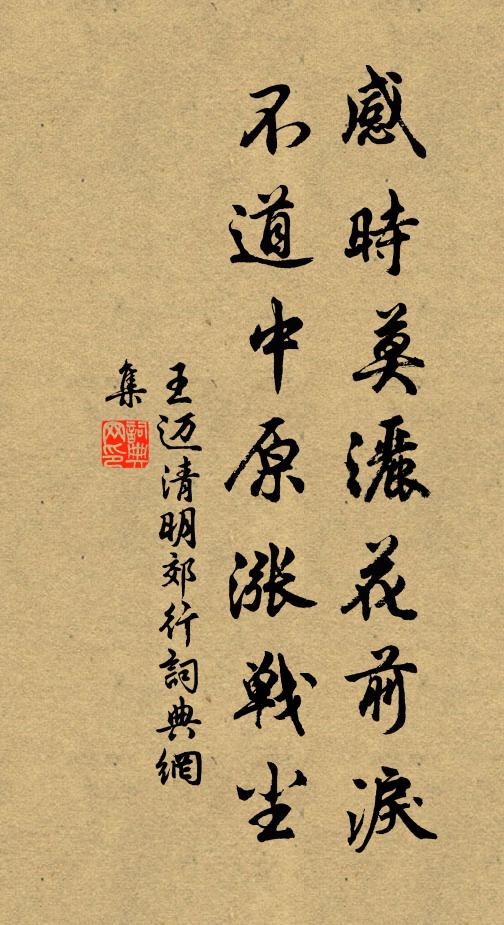 感時莫灑花前淚
不道中原漲戰尘
王迈清明郊行詞典網
集
詞典
网印